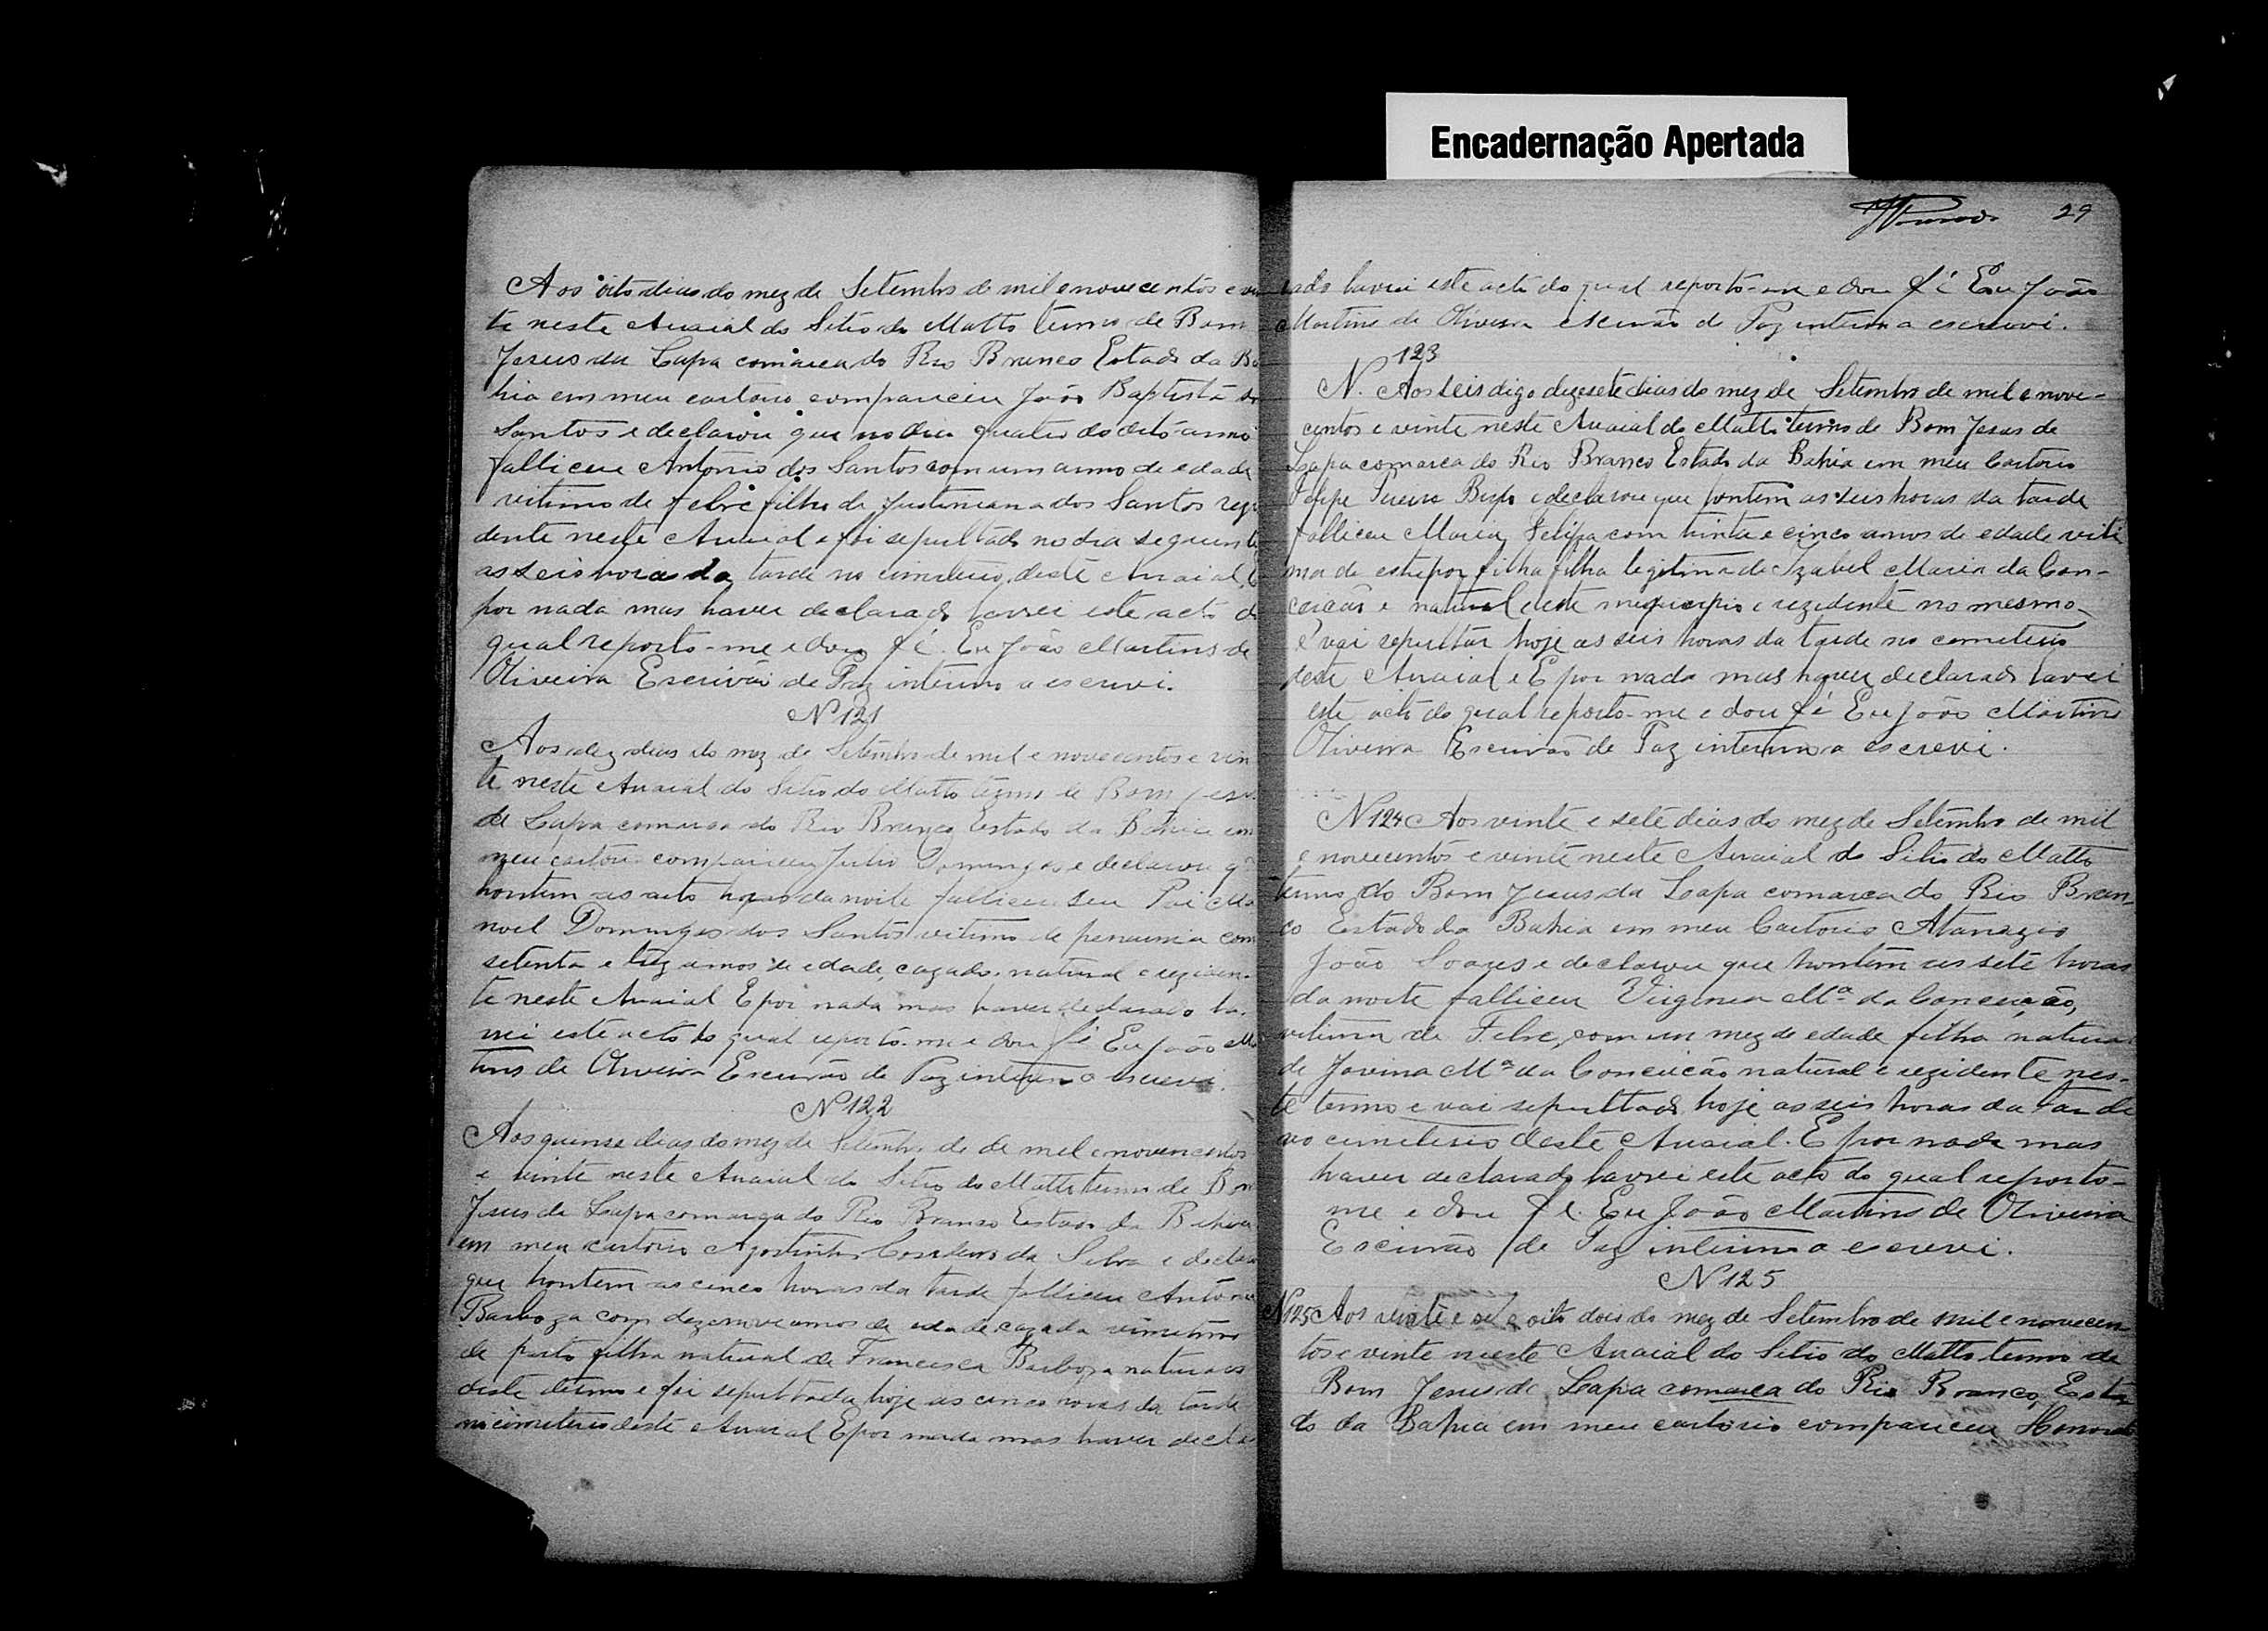 Encadernação Apertada
29
Aos oito dias do mez de Setembro de mil e novecentos e vin
te neste Arraial do Sitio do Matto termo de Bom
Jesus da Lapa comarca do Rio Branco Estado da Ba
hia em meu cartorio compareceu João Baptista do
Santos e declarou que no dia quatro do dito anno
falliceu Antonio dos Santos com um anno de edade
vitimo de febre filho de Justiniana dos Santos rezi
dente neste Arraial e foi sepultado no dia seguinte
as seis horas da tarde no cimiterio deste Arraial, E
por nada mas haver declarado lavrei este acto do
qual reporto-me e dou fé. Eu João Martins de
Oliveira Escrivão de Paz interino a escrevi.
N 121
Aos dez dias do mez de Setembro de mil e novecentos e vin
te neste Arraial do Sitio do Matto termo de Bom Jesus
da Lapa comarca do Rio Branco Estado da Bahia em
meu cartorio compareceu Julio Domingos e declarou q
hontem as oito horas da noite falliceu seu Pai Ma
noel Domingos dos Santos vitimo de penumia com
setenta e trez annos de edade, cazado, natural e reziden-
te neste Arraial E por nada mas haver declarado la-
vrei este acto do qual reporto-me e dou fé Eu João Mar
tins de Oliveira Escrivão de Paz interino a escrevi.
N 122
Aos quinse dias do mez de Setembro de de mil e novencentos
e vinte neste Arraial do Sitio do Matto termo de Bom
Jesus da Lapa comarca do Rio Branco Estado da Bahia
em meu cartorio Agostinho Cordeiro da Silva e declarou
que hontem as cinco horas da tarde falliceu Antonia
Barboza com dezenove annos de edade, cazada
de parto filha natural de Francisca Barboza naturaes
deste termo e foi sepultada hoje as cinco horas da tarde
no cimiterio deste Arraial E por nada mas haver decla
rado lavrei este acto do qual reporto-me e dou fé Eu João
Martins de Oliveira escrivão de Paz interino a escrevi.
123
N. Aos seis digo dezesete dias do mez de Setembro de mil e nove-
centos e vinte neste Arraial do Matto termo de Bom Jesus da
Lapa comarca do Rio Branco Estado da Bahia em meu Cartorio
Felipe Pereira Bispo e declarou que hontem as seis horas da tarde
falliceu Maria Felipa com trinta e cinco annos de edade viti
ma de estupor filha filha legitima de Izabel Maria da Con-
ceicão e natural deste municipio e rezidente no mesmo
e vai sepultar hoje as seis horas da tarde no cemeterio
deste Arraial e E por nada mas haver declarado lavrei
este acto do qual reporto-me e dou fé Eu João Martins
Oliveira Escrivão de Paz interino a escrevi.
N 124 Aos vinte e sete dias do mez de Setembro de mil
e novecentos e vinte neste Arraial do Sitio do Matto
termo do Bom Jesus da Lapa comarca do Rio Bran-
co Estado da Bahia em meu Cartorio Atanazio
João Soares e declarou que hontem as sete horas
da noite falliceu Virginia Mª da Conceição,
vitima de Febre, com um mez de edade filha natural
de Jovina Mª da Conceicão natural e rezidente nes-
te termo e vai sepultada hoje as seis horas da tarde
no cimiterio deste Arraial. E por nada mas
haver declarado lavrei este acto do qual reporto-
me e dou fé. Eu João Martins de Oliveira
Escrivão de Paz interino a escrevi.
N 125
N125 Aos vinte e oito dias do mez de Setembro de mil e novecen-
tos e vinte neste Arraial do Sitio do Matto termo de
Bom Jesus da Lapa comarca do Rio Branco, Esta
do da Bahia em meu cartorio compareceu Honorato